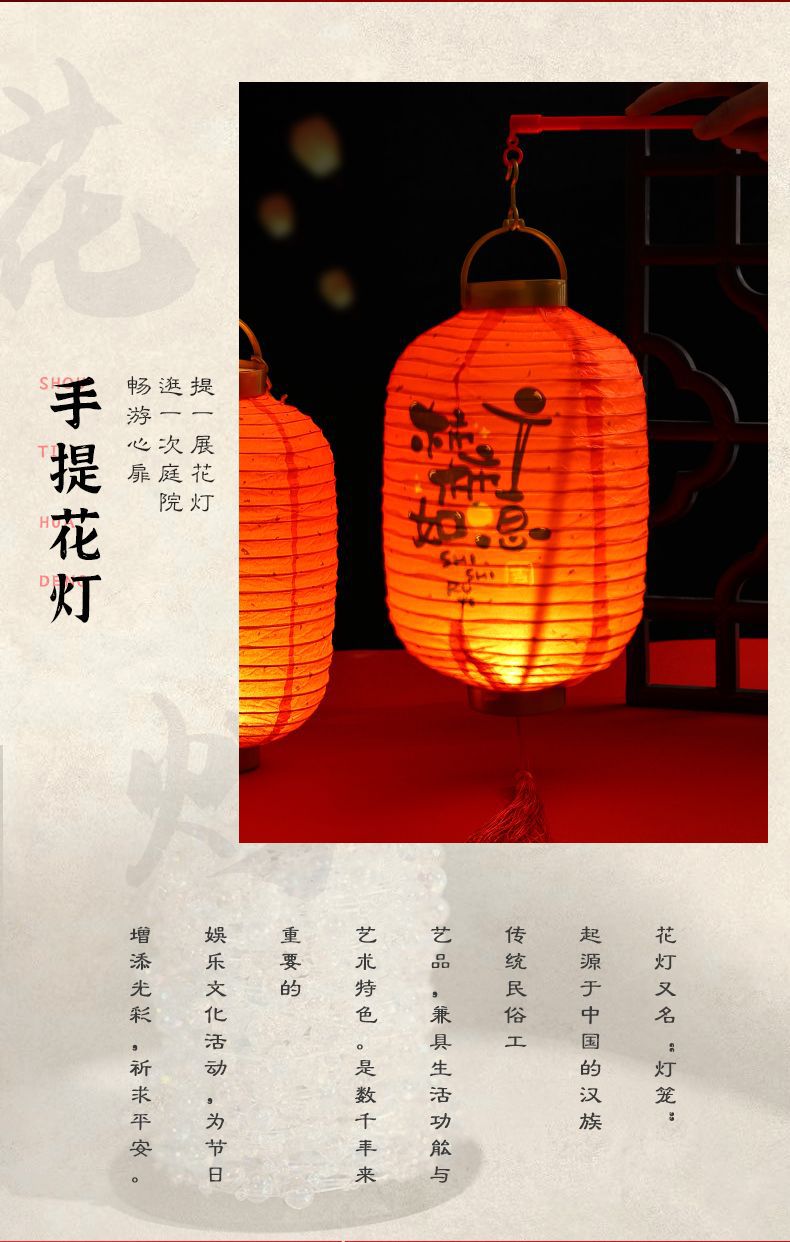 花
灯
手提花灯
SHOU
TI
HUA
DENG
提一展花灯
逛一次庭院
畅游心扉
柿柿如意
SHI
SHI
RU
YI
花灯又名“灯笼”
起源于中国的汉族
传统民俗工
艺品，兼具生活功能与
艺术特色。是数千年来
重要的
娱乐文化活动，为节日
增添光彩，祈求平安。